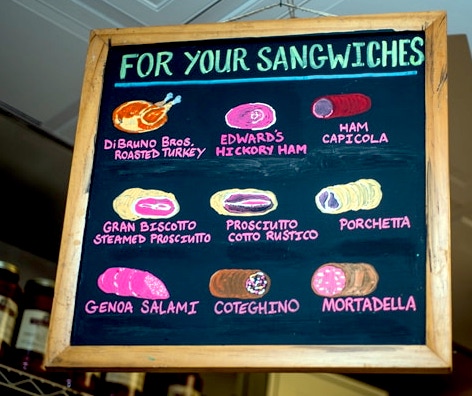 FOR YOUR SANGWICHES
DiBRUNO BROS.
ROASTED TURKEY
EDWARD'S
HICKORY HAM
HAM
CAPICOLA
GRAN BISCOTTO
STEAMED PROSCIUTTO
PROSCIUTTO
COTTO RUSTICO
PORCHETTA
GENOA SALAMI
COTEGHINO
MORTADELLA